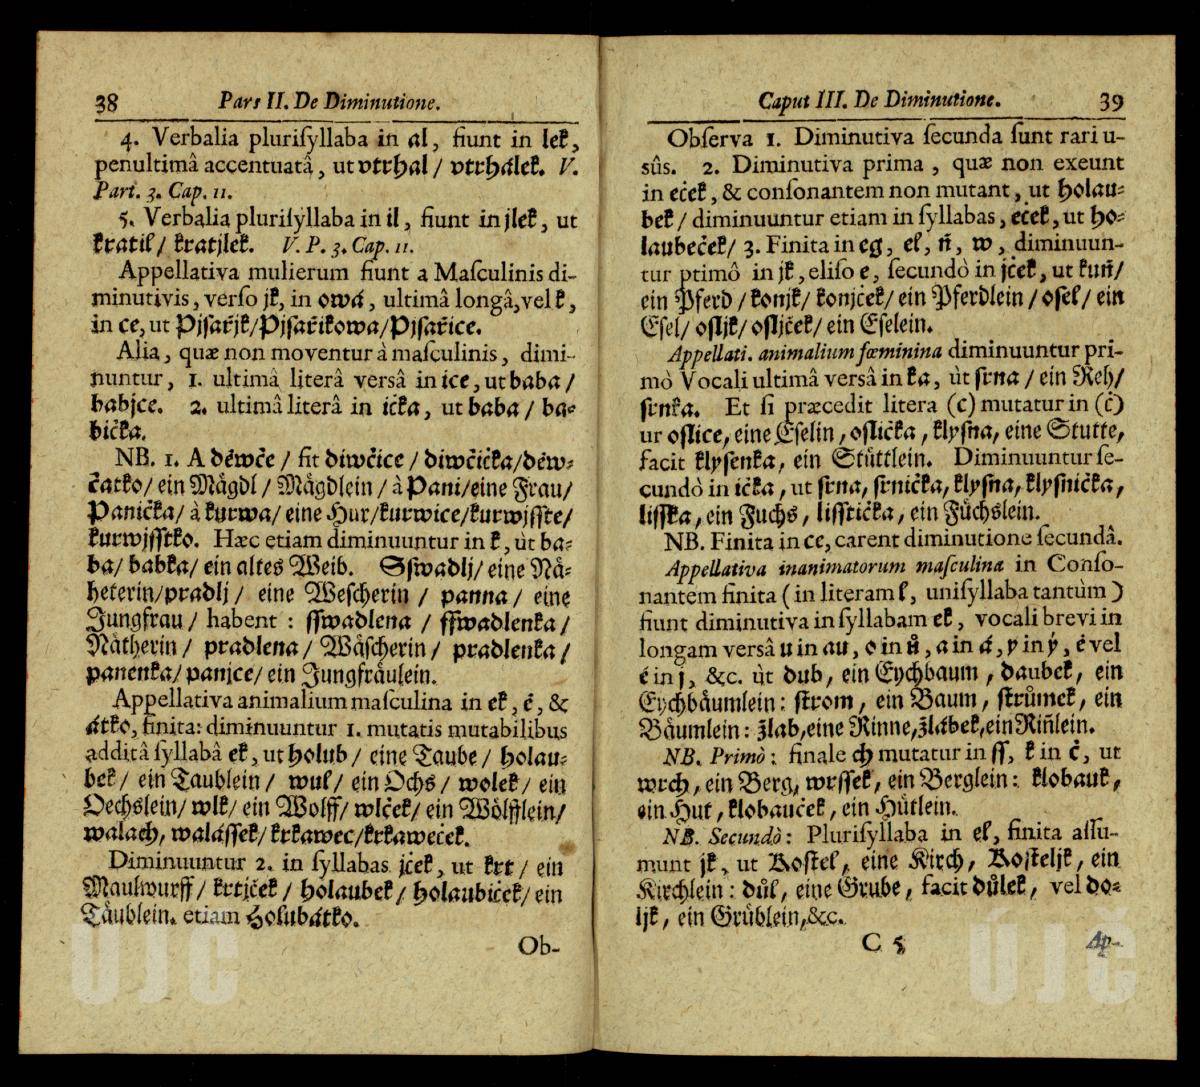 38 Pars II. De Diminutione.
4. Verbalia plurisyllaba in al, fiunt in lek,
penultimâ accentuatâ, ut vtrhal / vtrhálek. V.
Part. 3. Cap. 11.
5. Verbalia plurisyllaba in il, fiunt in jlek, ut
kratil / kratjlek. V. P. 3. Cap. 11.
Appellativa mulierum fiunt a Masculinis di-
minutivis, verso jk, in owá, ultimâ longâ, vel k,
in ce, ut Pjsařjk/Pjsařikowa/Pjsařice.
Alia, quæ non moventur à masculinis, dimi-
nuntur, 1. ultimâ literâ versâ in ice, ut baba /
babjce. 2. ultimâ literâ in ička, ut baba / ba-
bička.
NB. 1. A děwče / fit diwčice / diwčička/děw-
čatko/ ein Mågdl / Mågdlein / à Pani/eine Frau/
Panička/ à kurwa/ eine Hur/kurwice/kurwjsste/
kurwjsstko. Hæc etiam diminuuntur in k, ùt ba-
ba/ babka/ ein altes Weib. Sswadlj/ eine Nå-
heterin/pradlj / eine Wescherin / panna / eine
Jungfrau / habent : sswadlena / sswadlenka /
Nåtherin / pradlena / Wåscherin / pradlenka /
panenka/ panjce/ ein Jungfråulein.
Appellativa animalium masculina in ek, ě, &
átko, finita: diminuuntur 1. mutatis mutabilibus
additâ syllabâ ek, ut holub / eine Taube / holau-
bek / ein Taublein / wul / ein Ochs / wolek / ein
Oechslein/ wlk/ ein Wolff/ wlček/ ein Wölfflein/
walach, walássek/ krkawec/krkaweček.
Diminuuntur 2. in syllabas jček, ut krt / ein
Maulwurff / krtjček / holaubek / holaubiček/ ein
Tåublein. etiam Holubátko.
Ob-
Caput III. De Diminutione. 39
Observa 1. Diminutiva secunda sunt rari u-
sûs. 2. Diminutiva prima, quæ non exeunt
in eček, & consonantem non mutant, ut holau-
bek / diminuuntur etiam in syllabas, eček, ut ho-
laubeček/ 3. Finita in eg, el, ň, w, diminuun-
tur primô in jk, eliso e, secundò in jček, ut kuň/
ein Pferd / konjk/ konjček/ ein Pferdlein / osel / ein
Esel/ osljk/ osljček/ ein Eselein.
Appellati. animalium fœminina diminuuntur pri-
mò Vocali ultimâ versâ in ka, ùt srna / ein Reh/
srnka. Et si præcedit litera (c) mutatur in (č)
ut oslice, eine Eselin, oslička, klysna, eine Stutte,
facit klysenka, ein Stüttlein. Diminuuntur se-
cundò in ička, ut srna, srnička, klysna, klysnička,
lisska, ein Fuchs, lisstička, ein Füchslein.
NB. Finita in ce, carent diminutione secundâ.
Appellativa inanimatorum masculina in Conso-
nantem finita ( in literam l, unisyllaba tantùm )
fiunt diminutiva in syllabam ek, vocali brevi in
longam versâ u in au, o in ů, a in á, y in ý, ě vel
é in j, &c. ùt dub, ein Eychbaum, daubek, ein
Eychbåumlein: strom, ein Baum, strůmek, ein
Båumlein: žlab, eine Rinne, žlábek, ein Riñlein.
NB. Primò: finale ch mutatur in ss, k in č, ut
wrch, ein Berg, wrssek, ein Berglein: klobauk,
ein Hut, klobauček, ein Hütlein.
NB. Secundò: Plurisyllaba in el, finita assu-
munt jk, ut Kostel, eine Kirch, Kosteljk, ein
Kirchlein: důl, eine Grube, facit důlek, vel do-
ljk, ein Grüblein, &c.
C 5 Ap-
ÚJČ ÚJČ